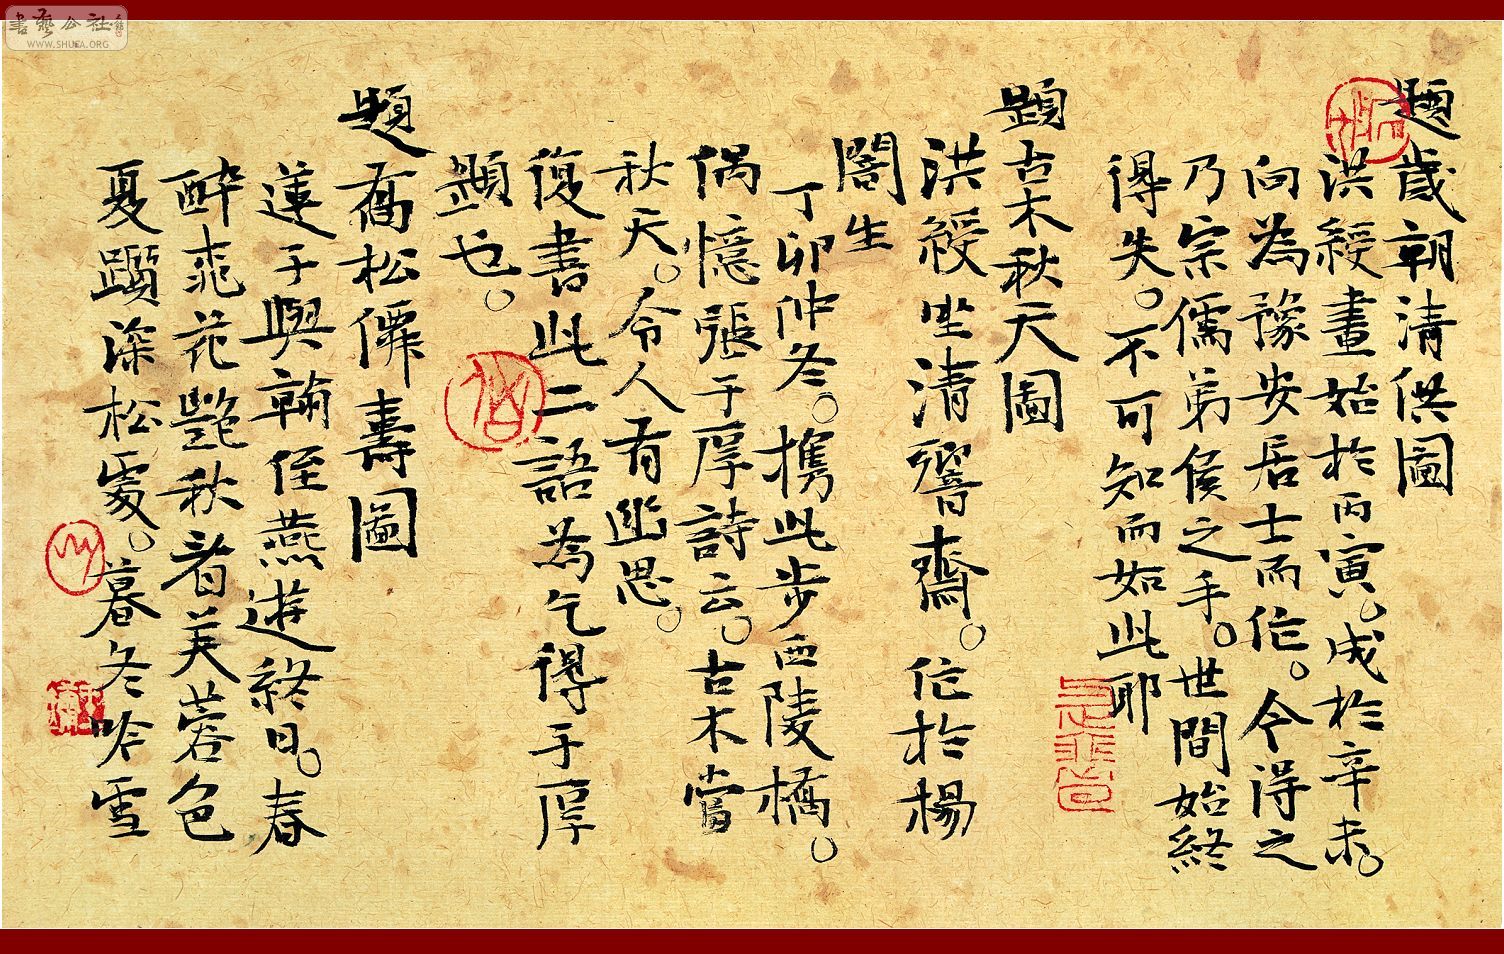 題歲朝清供圖
洪綬畫始於丙寅。成於辛未。
向為豫安居士而作。今得之
乃宗儒弟侯之手。世間始終
得失。不可知而如此耶
題古木秋天圖
洪綬坐清響齋。作於楊
閣生
丁卯仲冬。攜此步西陵橋。
偶憶張子厚詩云。古木嘗
秋天。令人有幽思。
復書此二語為乞得于厚
題也。
題喬松僊壽圖
蓮子與翰侄燕遊終日。春
醉桃花艷秋看芙蓉色
夏躋深松處。暮冬吟雪
書藝公社
WWW.SHUFA.ORG